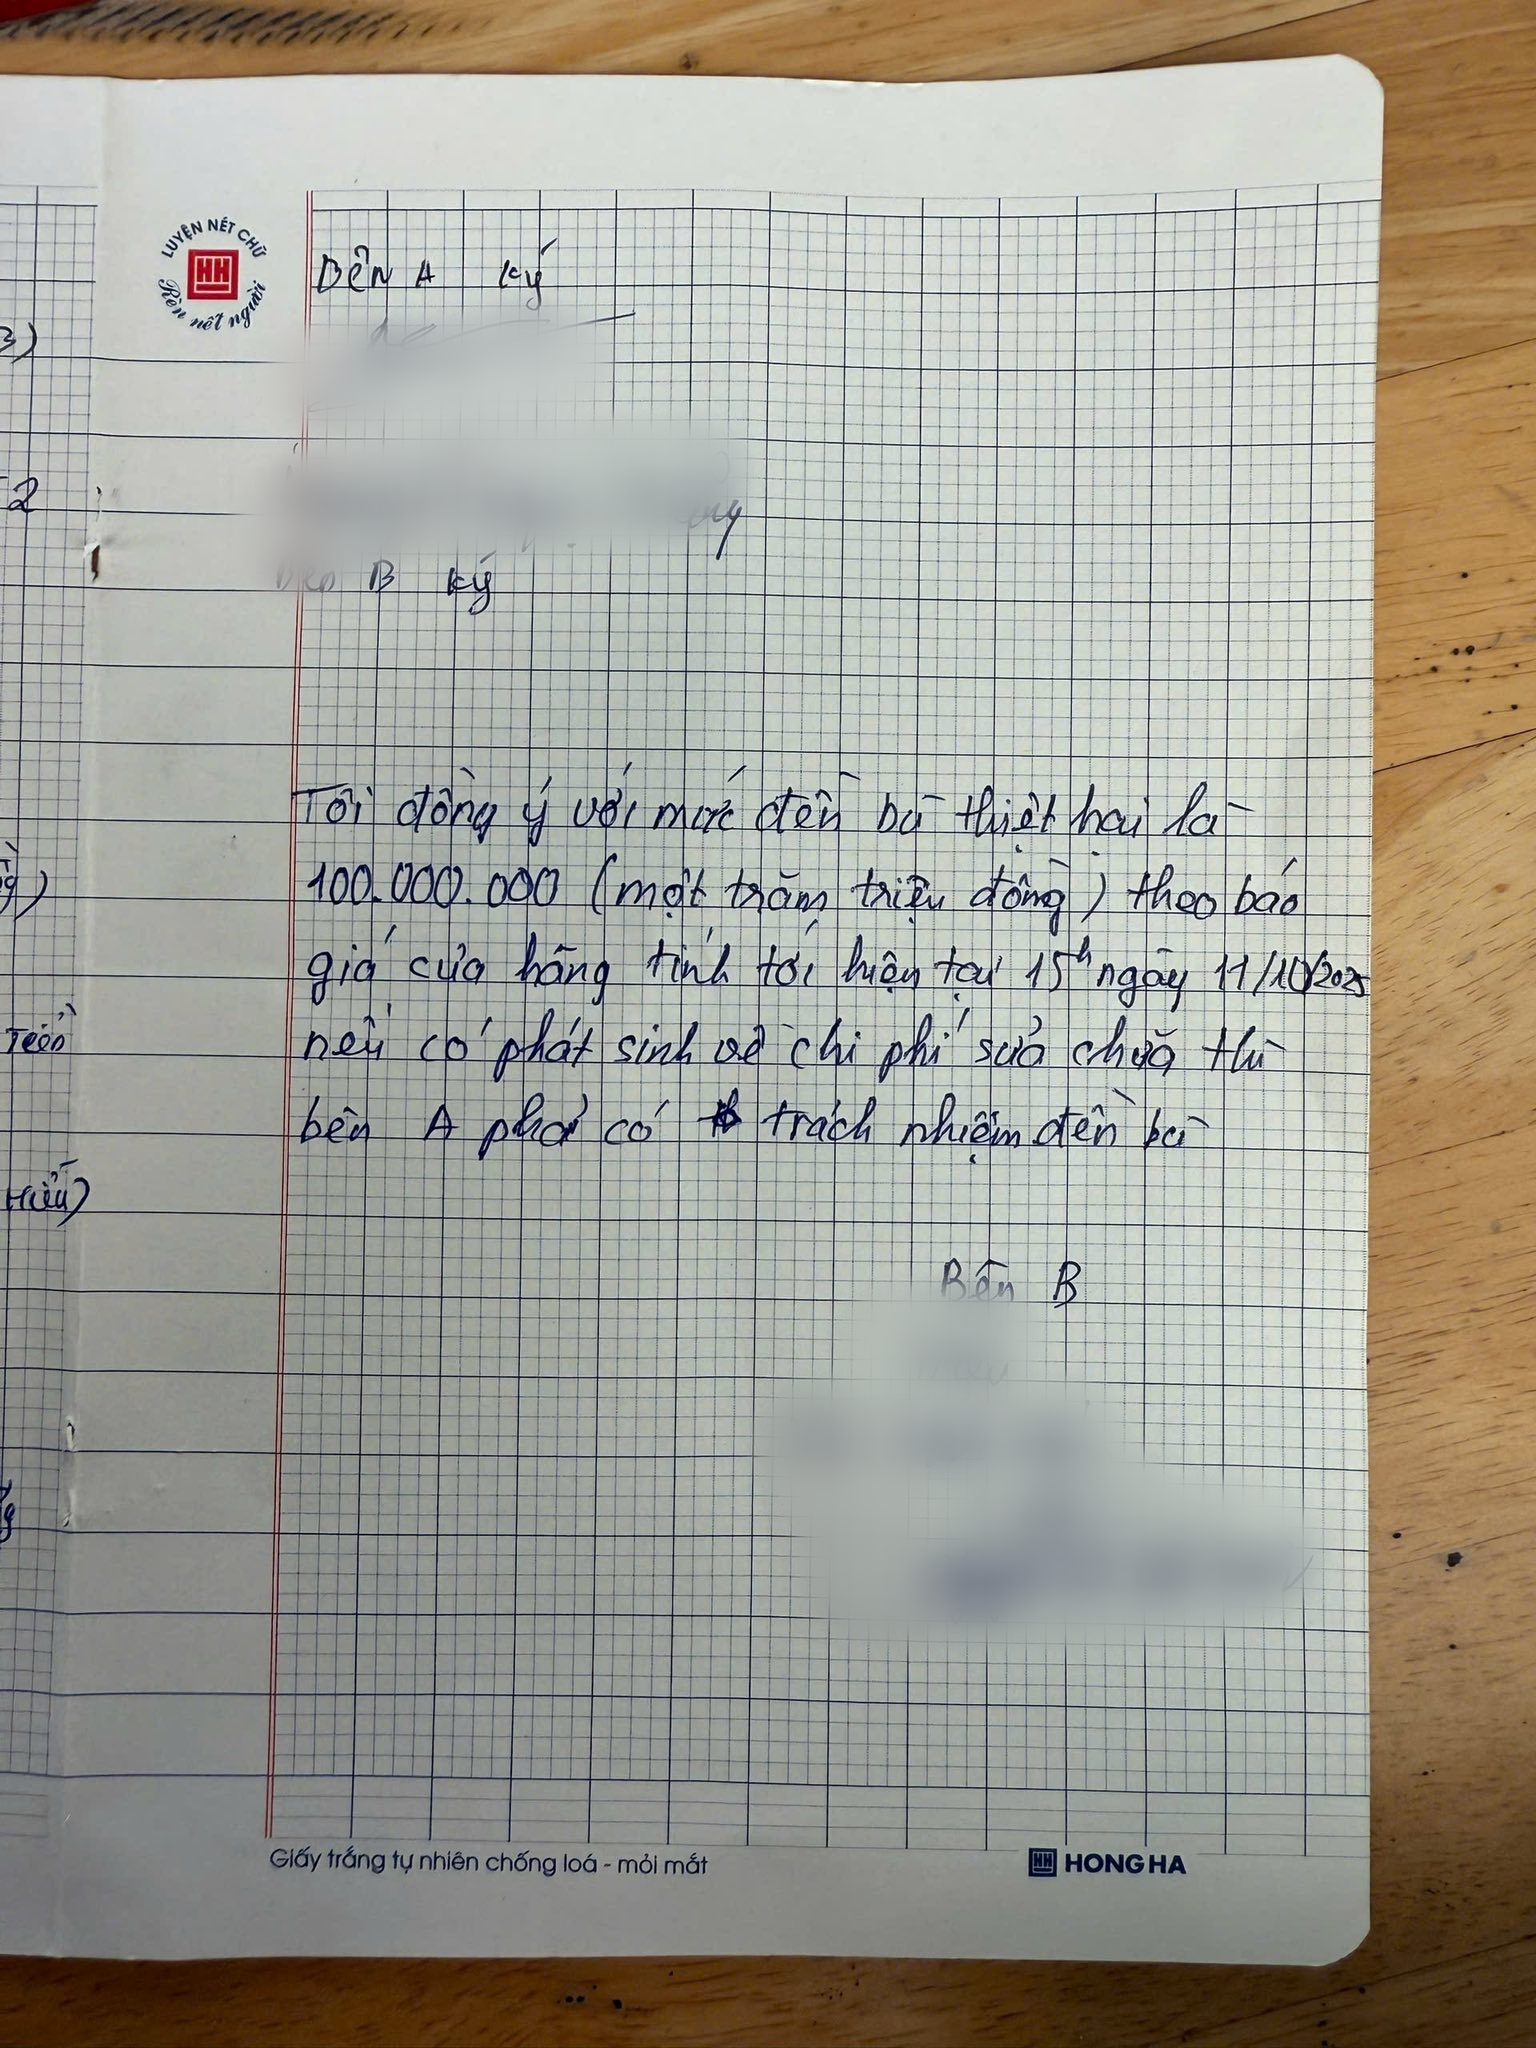 LUYỆN NÉT CHỮ
Rèn nết người
Bên A ký
B ký
Tôi đồng ý với mức đền bù thiệt hại là
100.000.000 (một trăm triệu đồng) theo báo
giá của hãng tính tới hiện tại 15h ngày 11/10/2025
nếu có phát sinh về chi phí sửa chữa thì
bên A phải có trách nhiệm đền bù
Bên B
Giấy trắng tự nhiên chống loá - mỏi mắt
HONG HA